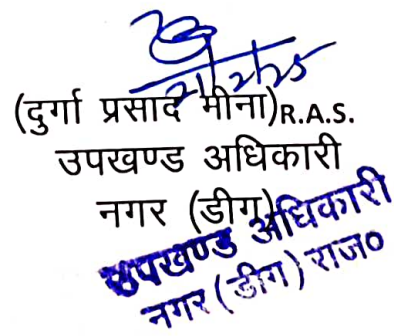 21/2/25
(दुर्गा प्रसाद मीना)R.A.S.
उपखण्ड अधिकारी
नगर (डीग)
उपखण्ड अधिकारी
नगर (डीग) राज०